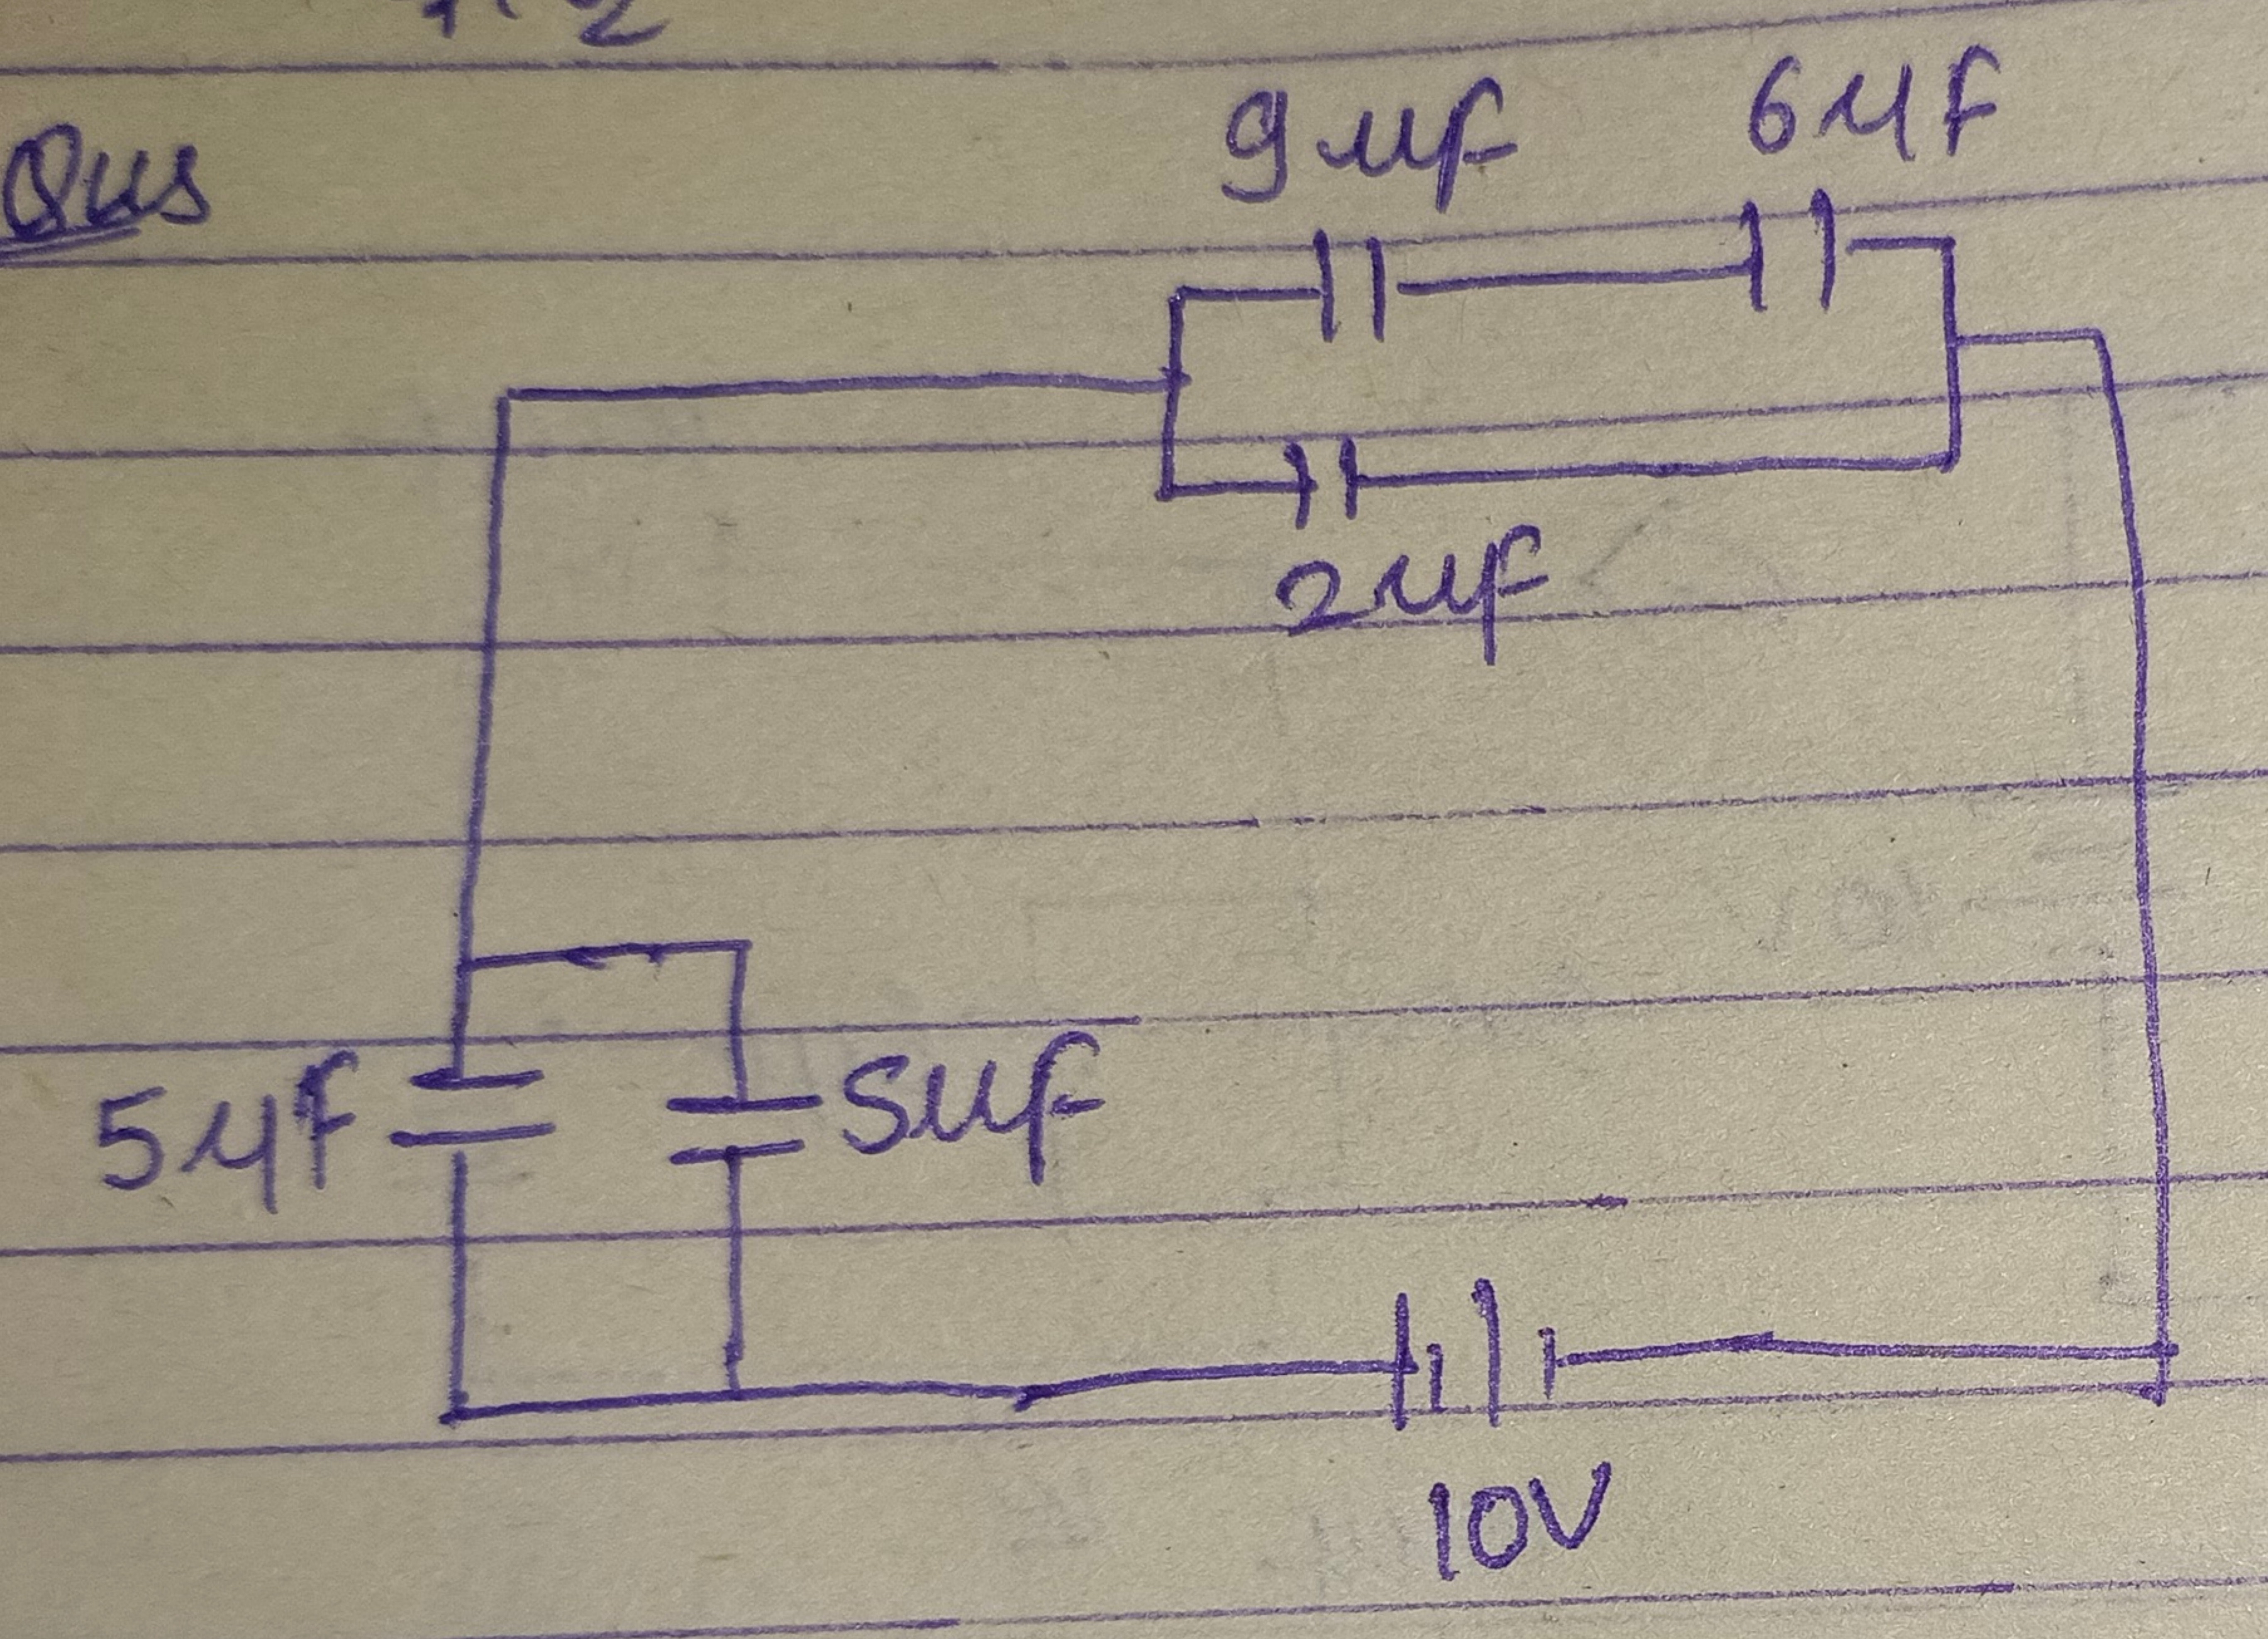 Qus
9 μf 6 μF
2 μf
5 μF 5 μf
10V